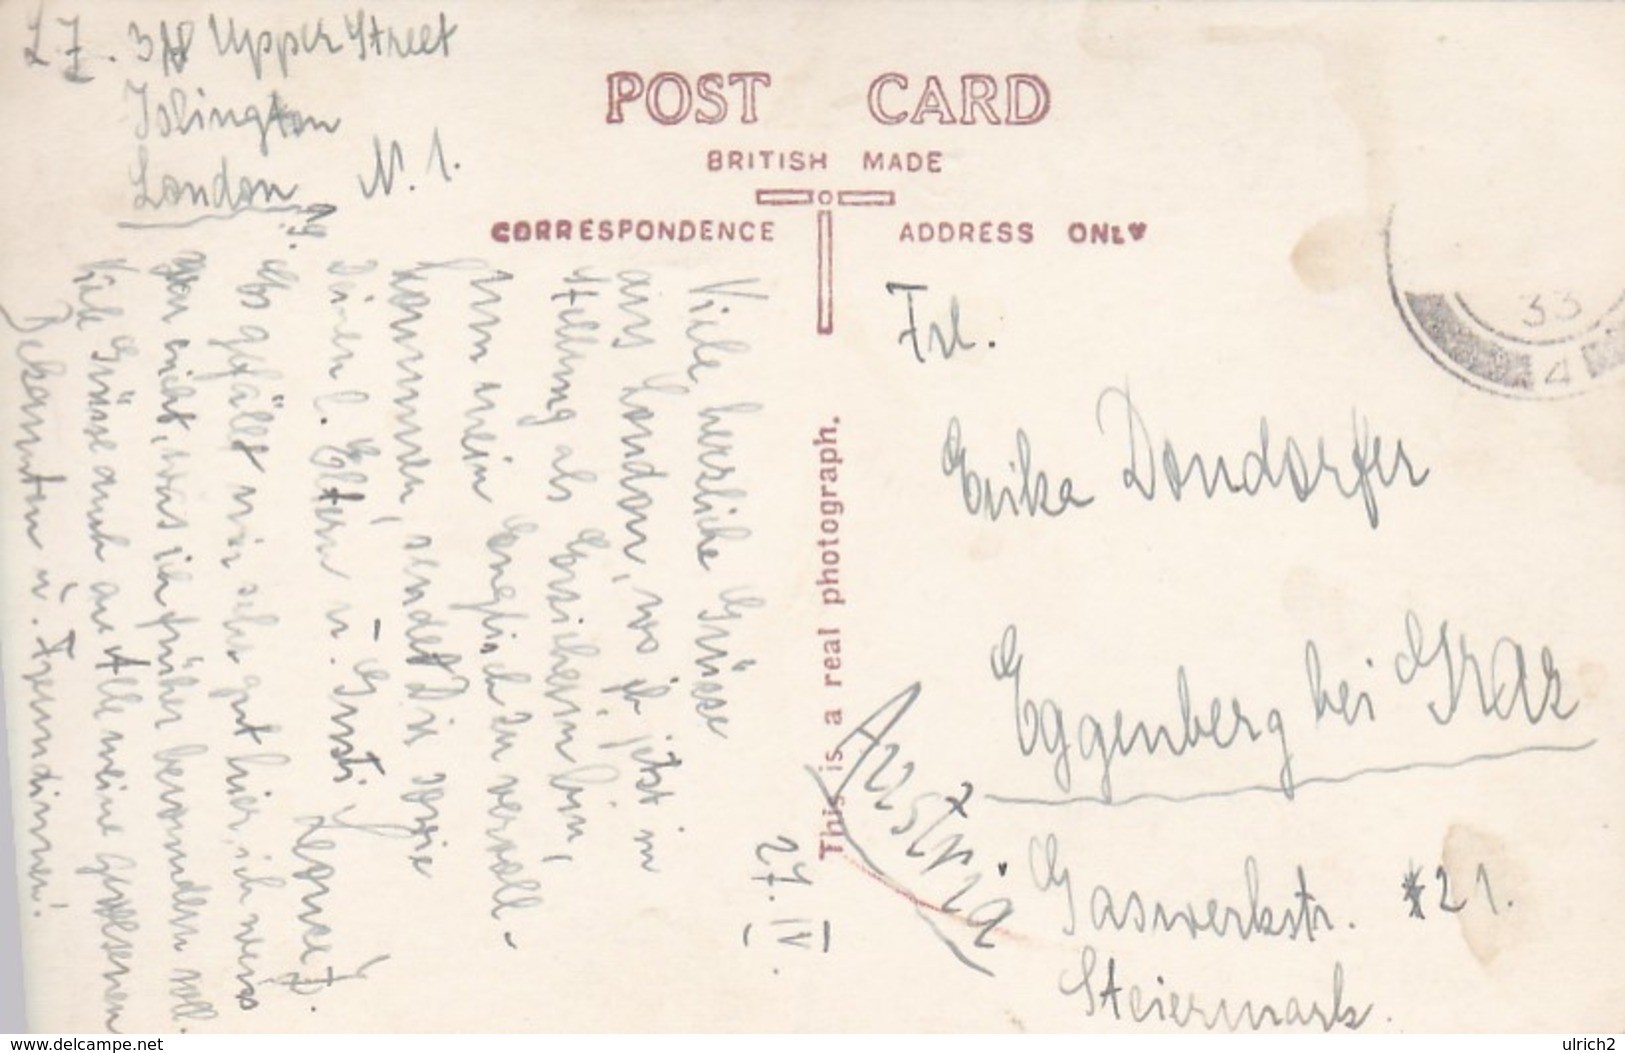 L Z. Upper Street
Islington
London N. 1.
POST CARD
BRITISH MADE
CORRESPONDENCE
ADDRESS ONLY
This is a real photograph.
27. IV.
Viele herzliche Grüsse
aus London, wo ich jetzt in
Stellung als Erzieherin bin,
um mein Englisch zu vervoll-
kommnen, sendet Dir sowie
Deinen l. Eltern u. Gusti,
Es gefällt mir sehr gut hier, ich weiss
gar nicht, was ich früher bewundern soll.
Viele Grüsse auch an Alle meine gewesenen
Bekannten u. Freundinnen!
Frl.
Erika Dondorfer
Eggenberg bei Graz
Gaswerkstr. 21.
Steiermark.
Austria
33
4
www.delcampe.net
ulrich2